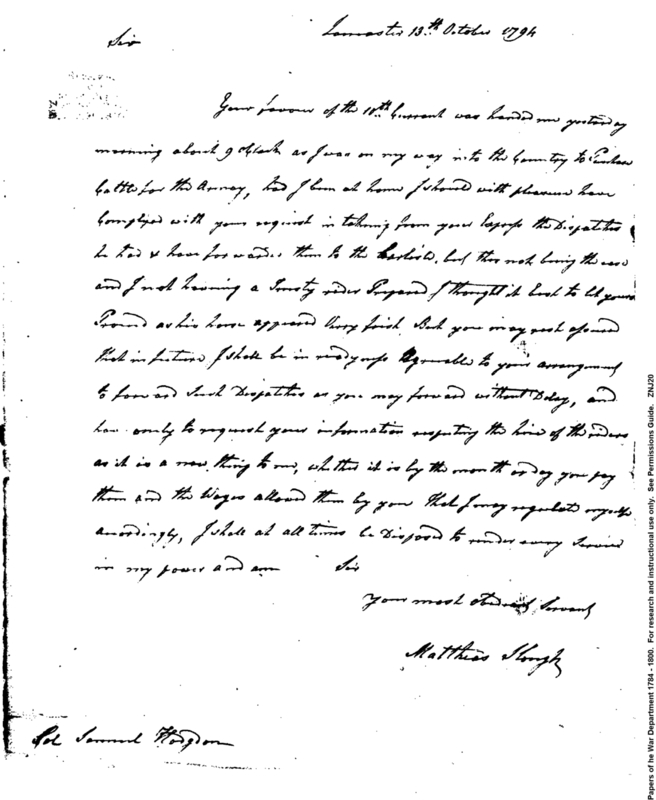 Lancaster 13th October 1794
Sir
Your favour of the 10th Current was handed me yesterday
morning about 9 oClock as I was on my way into the Country to Purchase
Cattle for the Army, had I been at home I should with pleasure have
Complyed with your request in takeing from your Express the Dispatches
he had & have forwarded them to Carlisle, but this not being the case
and I not having a Trusty rider Prepared I thought it best to let yours
Proceed as his horse appeared Very fresh. But you may rest assured
that in future I shall be in readyness Agreeable to your arrangement
to forward Such Dispatches as you may forward without Delay, and
have only to request your information respecting the hire of the riders
as it is a new thing to me, whether it is by the month or day you pay
them and the Wages allowed them by you that I may regulate myself
accordingly, I shall at all times be Disposed to render every Service
in my power and am Sir
Your most obedient Servant
Matthias Slough
Col Samuel Hodgdon
Papers of he War Department 1784 - 1800. For research and instructional use only. See Permissions Guide. ZNJ20